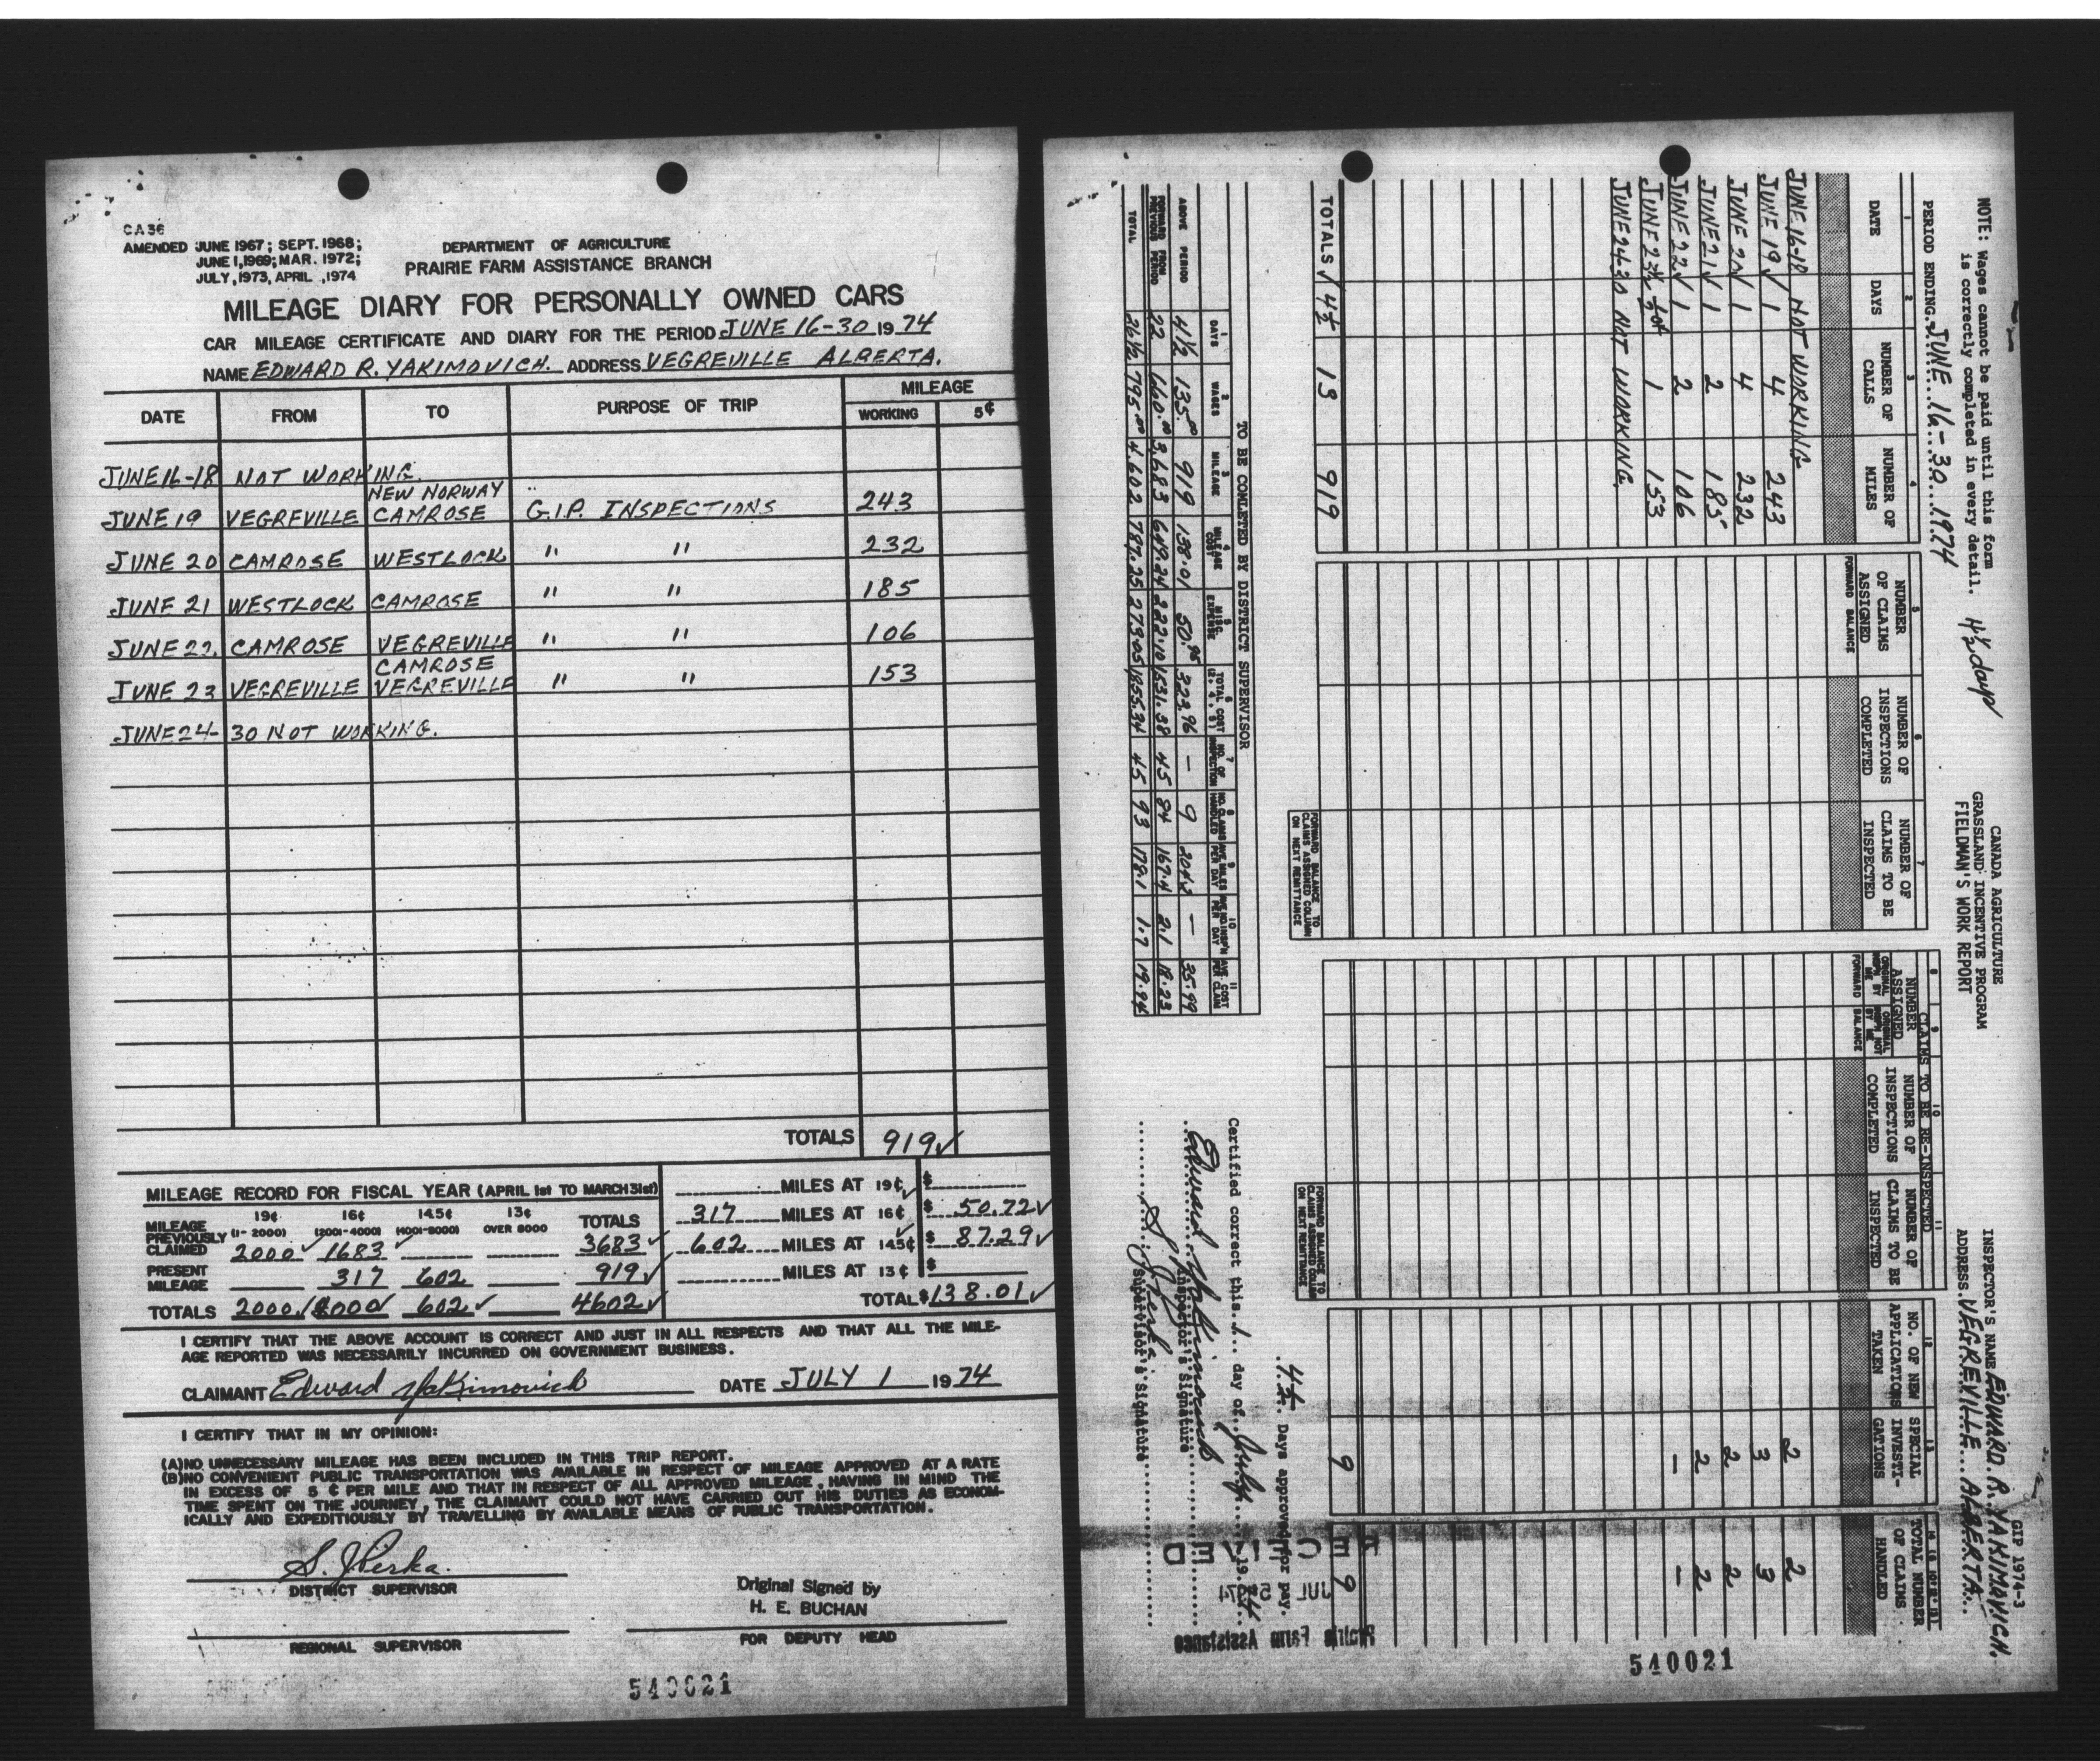 CA36
AMENDED JUNE 1967; SEPT. 1968;
JUNE 1, 1969; MAR. 1972;
JULY, 1973, APRIL, 1974
DEPARTMENT OF AGRICULTURE
PRAIRIE FARM ASSISTANCE BRANCH
MILEAGE DIARY FOR PERSONALLY OWNED CARS
CAR MILEAGE CERTIFICATE AND DIARY FOR THE PERIOD JUNE 16-30 1974
NAME EDWARD R. YAKIMOVICH. ADDRESS VEGREVILLE ALBERTA.
DATE FROM TO PURPOSE OF TRIP MILEAGE
WORKING 5¢
JUNE 16-18 NOT WORKING.
NEW NORWAY
JUNE 19 VEGREVILLE CAMROSE G.I.P. INSPECTIONS 243
JUNE 20 CAMROSE WESTLOCK " " 232
JUNE 21 WESTLOCK CAMROSE " " 185
JUNE 22. CAMROSE VEGREVILLE " " 106
CAMROSE
JUNE 23 VEGREVILLE VEGREVILLE " " 153
JUNE 24-30 NOT WORKING.
TOTALS 919 ✓
MILEAGE RECORD FOR FISCAL YEAR (APRIL 1st TO MARCH 31st)
19¢ 16¢ 14.5¢ 13¢
(1-2000) (2001-4000) (4001-8000) OVER 8000 TOTALS
MILEAGE PREVIOUSLY CLAIMED 2000 ✓ 1683 ✓ 3683 ✓
PRESENT MILEAGE 317 602 919 ✓
TOTALS 2000 ✓ 2000 ✓ 602 ✓ 4602 ✓
MILES AT 19¢ ✓ $
317 MILES AT 16¢ $ 50.72 ✓
602 MILES AT 14.5¢ ✓ $ 87.29 ✓
MILES AT 13¢ $
TOTAL $ 138.01 ✓
I CERTIFY THAT THE ABOVE ACCOUNT IS CORRECT AND JUST IN ALL RESPECTS AND THAT ALL THE MILE-
AGE REPORTED WAS NECESSARILY INCURRED ON GOVERNMENT BUSINESS.
CLAIMANT Edward Yakimovich DATE JULY 1 1974
I CERTIFY THAT IN MY OPINION:
(A) NO UNNECESSARY MILEAGE HAS BEEN INCLUDED IN THIS TRIP REPORT.
(B) NO CONVENIENT PUBLIC TRANSPORTATION WAS AVAILABLE IN RESPECT OF MILEAGE APPROVED AT A RATE
IN EXCESS OF 5 ¢ PER MILE AND THAT IN RESPECT OF ALL APPROVED MILEAGE, HAVING IN MIND THE
TIME SPENT ON THE JOURNEY, THE CLAIMANT COULD NOT HAVE CARRIED OUT HIS DUTIES AS ECONOM-
ICALLY AND EXPEDITIOUSLY BY TRAVELLING BY AVAILABLE MEANS OF PUBLIC TRANSPORTATION.
S. J. Perka.
DISTRICT SUPERVISOR
Original Signed by
H. E. BUCHAN
REGIONAL SUPERVISOR
FOR DEPUTY HEAD
540021
GIP 1974-3
CANADA AGRICULTURE
GRASSLAND INCENTIVE PROGRAM
FIELDMAN'S WORK REPORT
NOTE: Wages cannot be paid until this form
is correctly completed in every detail. 4½ days
INSPECTOR'S NAME EDWARD R. YAKIMOVICH.
PERIOD ENDING JUNE 16-30 1974
ADDRESS VEGREVILLE ALBERTA
CLAIMS TO BE RE-INSPECTED
1 2 3 4 5 6 7 8 9 10 11 12 13 14
DATE
DAYS
NUMBER OF CALLS
NUMBER OF MILES
NUMBER OF CLAIMS ASSIGNED
NUMBER OF INSPECTIONS COMPLETED
NUMBER OF CLAIMS TO BE INSPECTED
NUMBER ASSIGNED
ORIGINAL INSP'N BY ME
ORIGINAL INSP'N NOT BY ME
NUMBER OF INSPECTIONS COMPLETED
NUMBER OF CLAIMS TO BE INSPECTED
NO. OF NEW APPLICATIONS TAKEN
SPECIAL INVESTI-GATIONS
TOTAL NUMBER OF CLAIMS HANDLED
FORWARD BALANCE
FORWARD BALANCE
JUNE 16-18 NOT WORKING
JUNE 19 ✓ 1 4 243 2 2
JUNE 20 ✓ 1 4 232 3 3
JUNE 21 ✓ 1 2 185 2 2
JUNE 22 ✓ 1 2 106 2 2
JUNE 23 ½ 1 153 - -
JUNE 24-30 NOT WORKING.
TOTALS ✓ 4½ 13 919 9 9
FORWARD BALANCE TO CLAIMS ASSIGNED COLUMN ON NEXT REMITTANCE
FORWARD BALANCE TO CLAIMS ASSIGNED COLUMN ON NEXT REMITTANCE
4½ Days approved for pay.
TO BE COMLETED BY DISTRICT SUPERVISOR
1 DAYS
2 WAGES
3 MILEAGE
4 MILEAGE COST
5 MISC. EXPENSE
6 TOTAL COST (2, 4, 5)
7 NO. OF INSPECTION
8 NO. CLAIMS HANDLED
9 AVE. MILES PER DAY
10 AVE. NO. INSP'N PER DAY
11 AVE. COST PER CLAIM
ABOVE PERIOD 4½ 135.00 919 138.01 50.95 323.96 - 9 204.2 - 35.99
FORWARD FROM PREVIOUS PERIOD 22 660.00 3,683 649.24 222.10 1531.38 45 84 167.4 2.1 18.23
TOTAL 26½ 795.00 4,602 787.25 273.05 1855.34 45 93 178.1 1.7 19.94
Certified correct this 1 day of July 19 74
Edward Yakimovich
Inspector's Signature
S. J. Perka
Supervisor's Signature
RECEIVED
JUL 5 74
Prairie Farm Assistance
540021